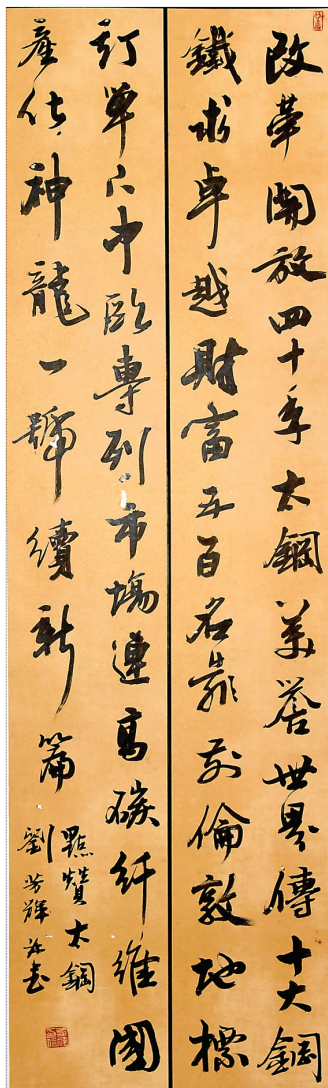 改革開放四十年太鋼美譽世界傳十大鋼
鐵求卓越財富五百名靠前倫敦地標
訂單亽中歐專列市場連高碳纤維國
產化神龍一號續新篇
點贊太鋼
劉芳輝詩書